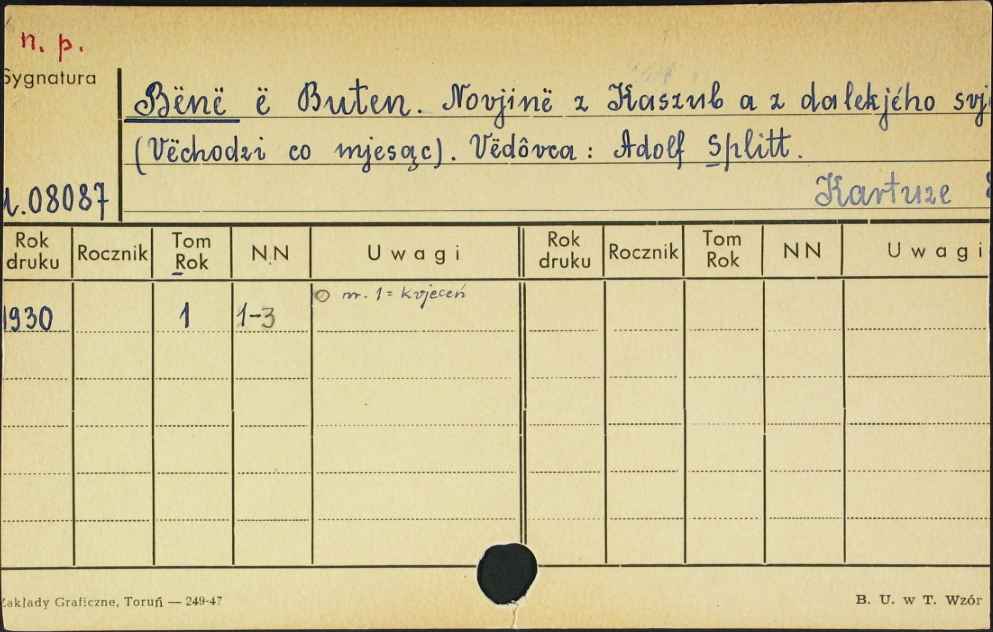 n. p.
Sygnatura
Bënë ë Buten. Novjinë z Kaszub a z dalekjého svj
(Vëchodzi co mjesąc). Vëdôvca: Adolf Splitt.
08087
Kartuze
Rok druku Rocznik Tom Rok NN Uwagi Rok druku Rocznik Tom Rok NN Uwagi
1930 1 1-3 nr. 1 = kvjeceń
Zakłady Graficzne, Toruń — 249-47 B. U. w T. Wzór